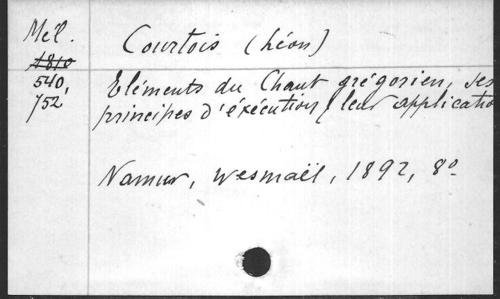 Mél.
1810
540,
752
Courtois (Léon)
Eléments du Chant grégorien, ses
principes d'éxécution, leur applicatio
Namur, Wesmaël, 1892, 8º